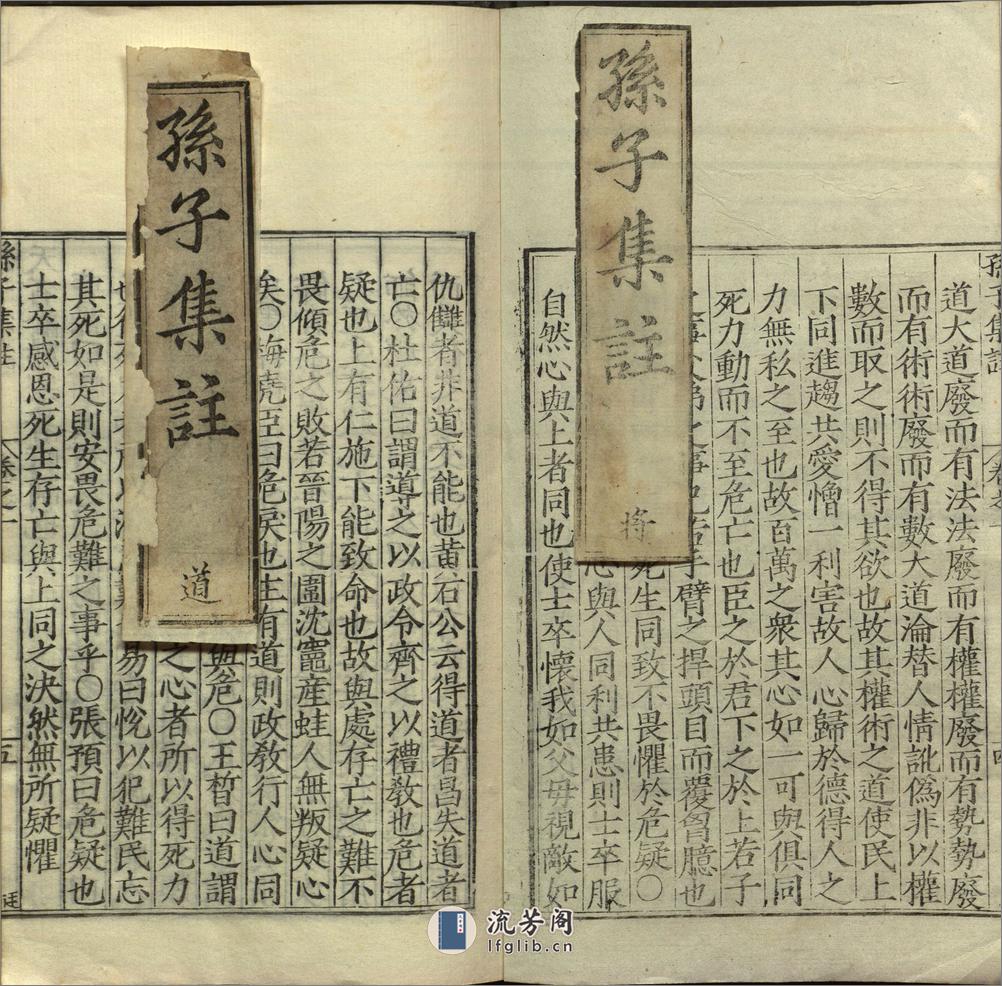 孫子集註
將
道大道廢而有法法廢而有權權廢而有勢勢廢
而有術術廢而有數大道淪替人情訛偽非以權
數而取之則不得其欲也故其權術之道使民上
下同進趨共愛憎一利害故人心歸於德得人之
力無私之至也故百萬之衆其心如一可與俱同
死力動而不至危亡也臣之於君下之於上若子
手臂之捍頭目而覆胷臆也
死生同致不畏懼於危疑〇
心與人同利共患則士卒服
自然心與上者同也使士卒懷我如父毋視敵如
孫子集註
道
仇讎者非道不能也黃石公云得道者昌失道者
亡〇杜佑曰謂導之以政令齊之以禮敎也危者
疑也上有仁施下能致命也故與處存亡之難不
畏傾危之敗若晉陽之圍沈竈産蛙人無叛疑心
矣〇梅堯臣曰危戾也主有道則政敎行人心同
與危〇王晳曰道謂
之心者所以得死力
易曰恱以犯難民忘
其死如是則安畏危難之事乎〇張預曰危疑也
士卒感恩死生存亡與上同之決然無所疑懼
孫子集註 卷之一 五
流芳阁
lfglib.cn